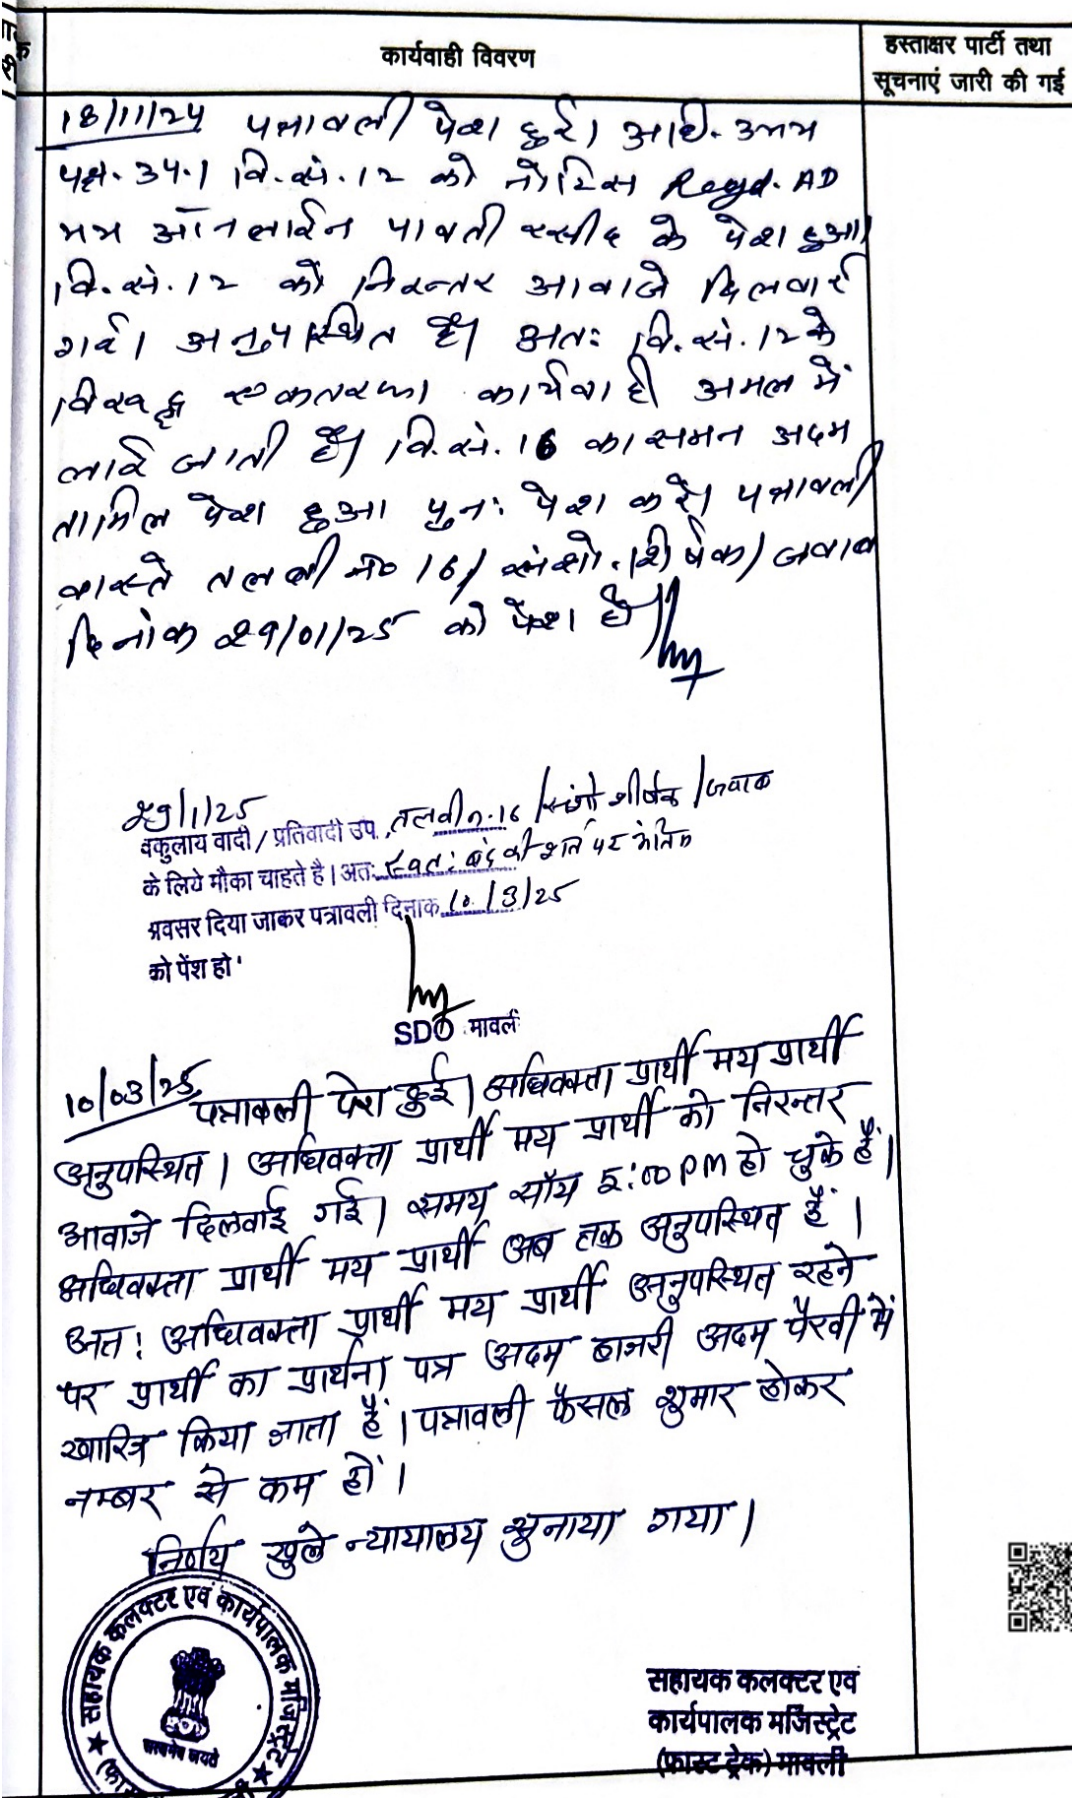 कार्यवाही विवरण
हस्ताक्षर पार्टी तथा
सूचनाएं जारी की गई
18/11/24 पत्रावली पेश हुई। अधि. उभय
पक्ष. उप.। वि.सं. 12 को नोटिस Regd. AD
मय ऑनलाईन पावती रसीद के पेश हुआ।
वि.सं. 12 को निरन्तर आवाजे दिलवाई
गई। अनुपस्थित है। अतः वि.सं. 12 के
विरुद्ध एकतरफा कार्यवाही अमल में
लाई जाती है। वि.सं. 16 का समन अदम
तामिल पेश हुआ पुनः पेश करें। पत्रावली
वास्ते तलबी न० 16/ संशो. शीर्षक/ जवाब
दिनांक 29/01/25 को पेश हो।
29/1/25
वकुलाय वादी / प्रतिवादी उप. तलबी न. 16 /संशो शीर्षक /जवाब
के लिये मौका चाहते है। अतः स्वतः बंद की शर्त पर अंतिम
अवसर दिया जाकर पत्रावली दिनाक 10/3/25
को पेंश हो'
SDO मावली
10/03/25 पत्रावली पेश हुई। अधिवक्ता प्रार्थी मय प्रार्थी
अनुपस्थित। अधिवक्ता प्रार्थी मय प्रार्थी को निरन्तर
आवाजे दिलवाई गई। समय सॉय 5:00 PM हो चुके हैं।
अधिवक्ता प्रार्थी मय प्रार्थी अब तक अनुपस्थित हैं।
अतः अधिवक्ता प्रार्थी मय प्रार्थी अनुपस्थित रहने
पर प्रार्थी का प्रार्थना पत्र अदम हाजरी अदम पैरवी में
खारिज किया जाता हैं। पत्रावली फैसल शुमार होकर
नम्बर से कम हों।
निर्णय खुले न्यायालय सुनाया गया।
सहायक कलक्टर एवं कार्यपालक मजिस्ट्रेट
सत्यमेव जयते
सहायक कलक्टर एवं
कार्यपालक मजिस्ट्रेट
(फास्ट ट्रेक) मावली